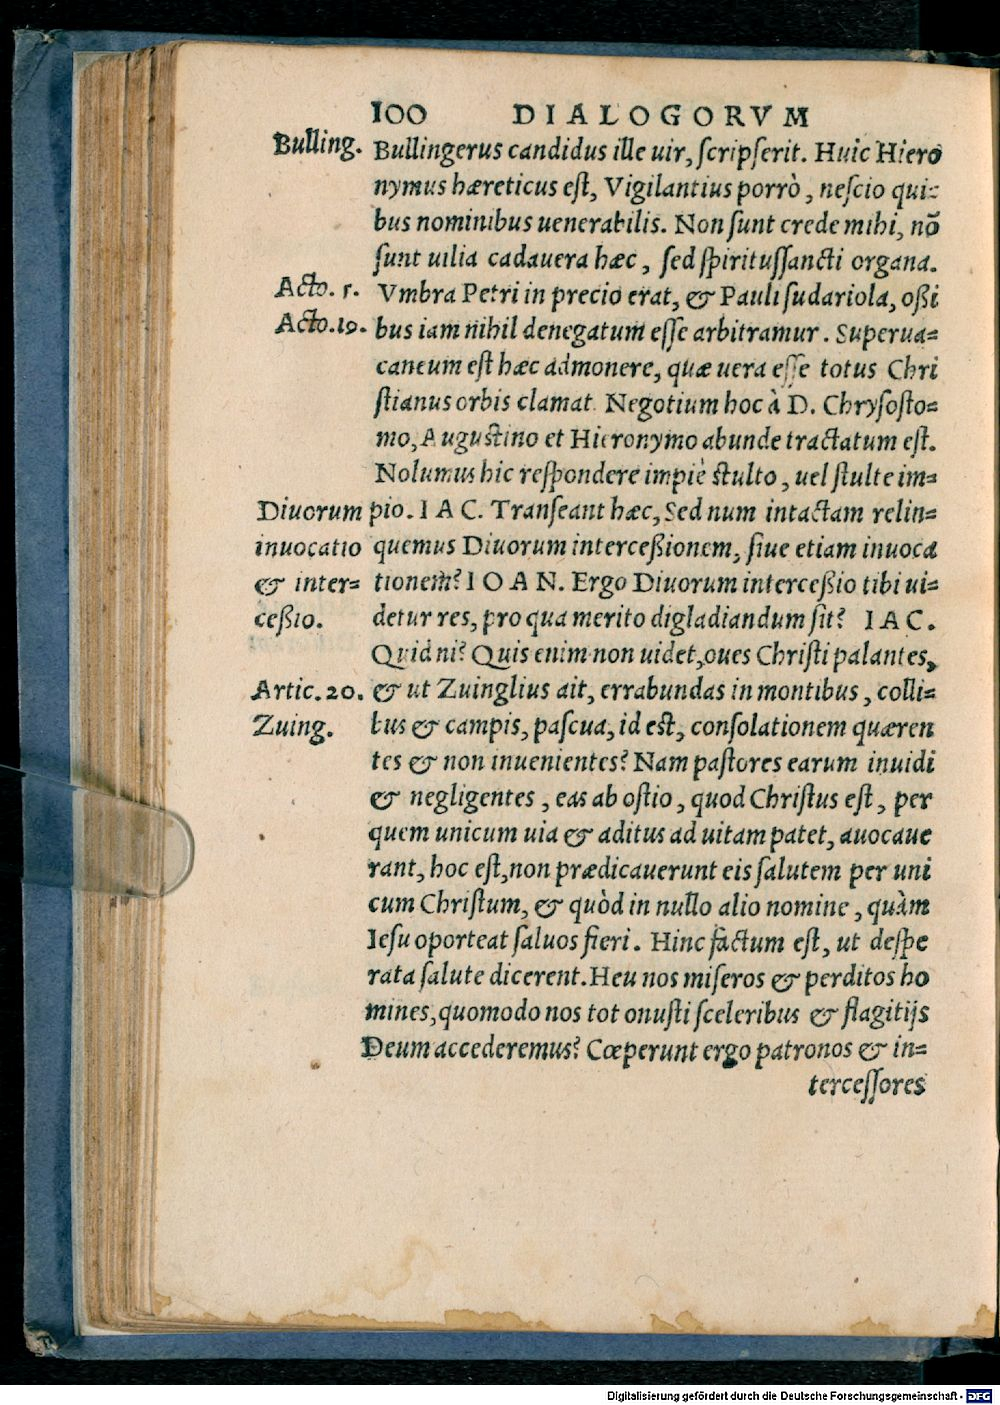 100 DIALOGORVM
Bulling. Bullingerus candidus ille uir, ſcripſerit. Huic Hiero
nymus hæreticus eſt, Vigilantius porrò, neſcio qui=
bus nominibus uenerabilis. Non ſunt crede mihi, nõ
ſunt uilia cadauera hæc, ſed ſpirituſſancti organa.
Acto. 5. Vmbra Petri in precio erat, & Pauli ſudariola, oßi
Acto. 19. bus iam nihil denegatum eſſe arbitramur. Superua=
caneum eſt hæc admonere, quæ uera eſſe totus Chri
ſtianus orbis clamat. Negotium hoc à D. Chryſoſto=
mo, Auguſtino et Hieronymo abunde tractatum eſt.
Nolumus hic reſpondere impiè ſtulto, uel ſtulte im=
Diuorum pio. IAC. Tranſeant hæc, Sed num intactam relin=
inuocatio quemus Diuorum interceßionem, ſiue etiam inuoca
& inter= tionem? IOAN. Ergo Diuorum interceßio tibi ui=
ceßio. detur res, pro qua merito digladiandum ſit? IAC.
Quid ni? Quis enim non uidet, oues Chriſti palantes,
Artic. 20. & ut Zuinglius ait, errabundas in montibus, colli=
Zuing. bus & campis, paſcua, id eſt, conſolationem quæren
tes & non inuenientes? Nam paſtores earum inuidi
& negligentes, eas ab oſtio, quod Chriſtus eſt, per
quem unicum uia & aditus ad uitam patet, auocaue
rant, hoc eſt, non prædicauerunt eis ſalutem per uni
cum Chriſtum, & quòd in nullo alio nomine, quàm
Ieſu oporteat ſaluos fieri. Hinc factum eſt, ut deſpe
rata ſalute dicerent. Heu nos miſeros & perditos ho
mines, quomodo nos tot onuſti ſceleribus & flagitijs
Deum accederemus? Cœperunt ergo patronos & in=
terceſſores
Digitalisierung gefördert durch die Deutsche Forschungsgemeinschaft - DFG